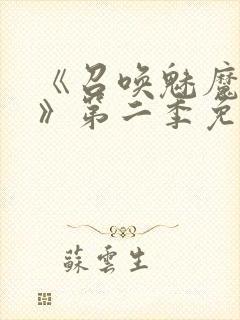 《召唤魅魔
》第二季免
蘇雲生